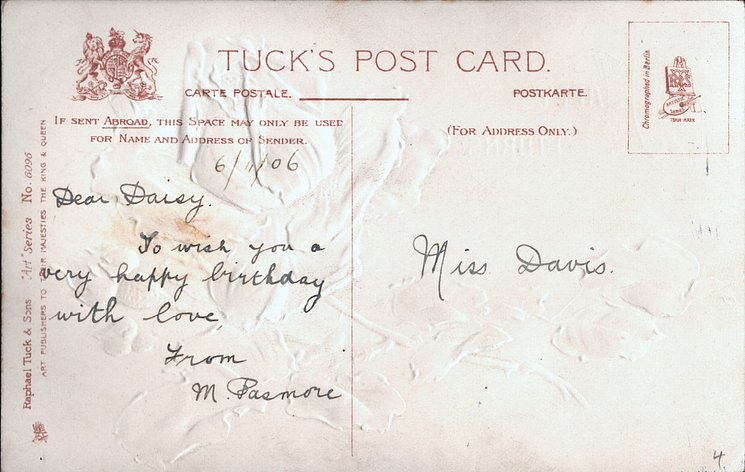 TUCK'S POST CARD.
CARTE POSTALE.
POSTKARTE.
IF SENT ABROAD, THIS SPACE MAY ONLY BE USED
FOR NAME AND ADDRESS OF SENDER.
(FOR ADDRESS ONLY.)
6/11/06
Dear Daisy.
To wish you a
very happy birthday
with love
From
M. Pasmore
Miss Davis.
Raphael Tuck & Sons "Art" Series No. 6096
ART PUBLISHERS TO THEIR MAJESTIES THE KING & QUEEN
Chromographed in Berlin
TRADE MARK
4